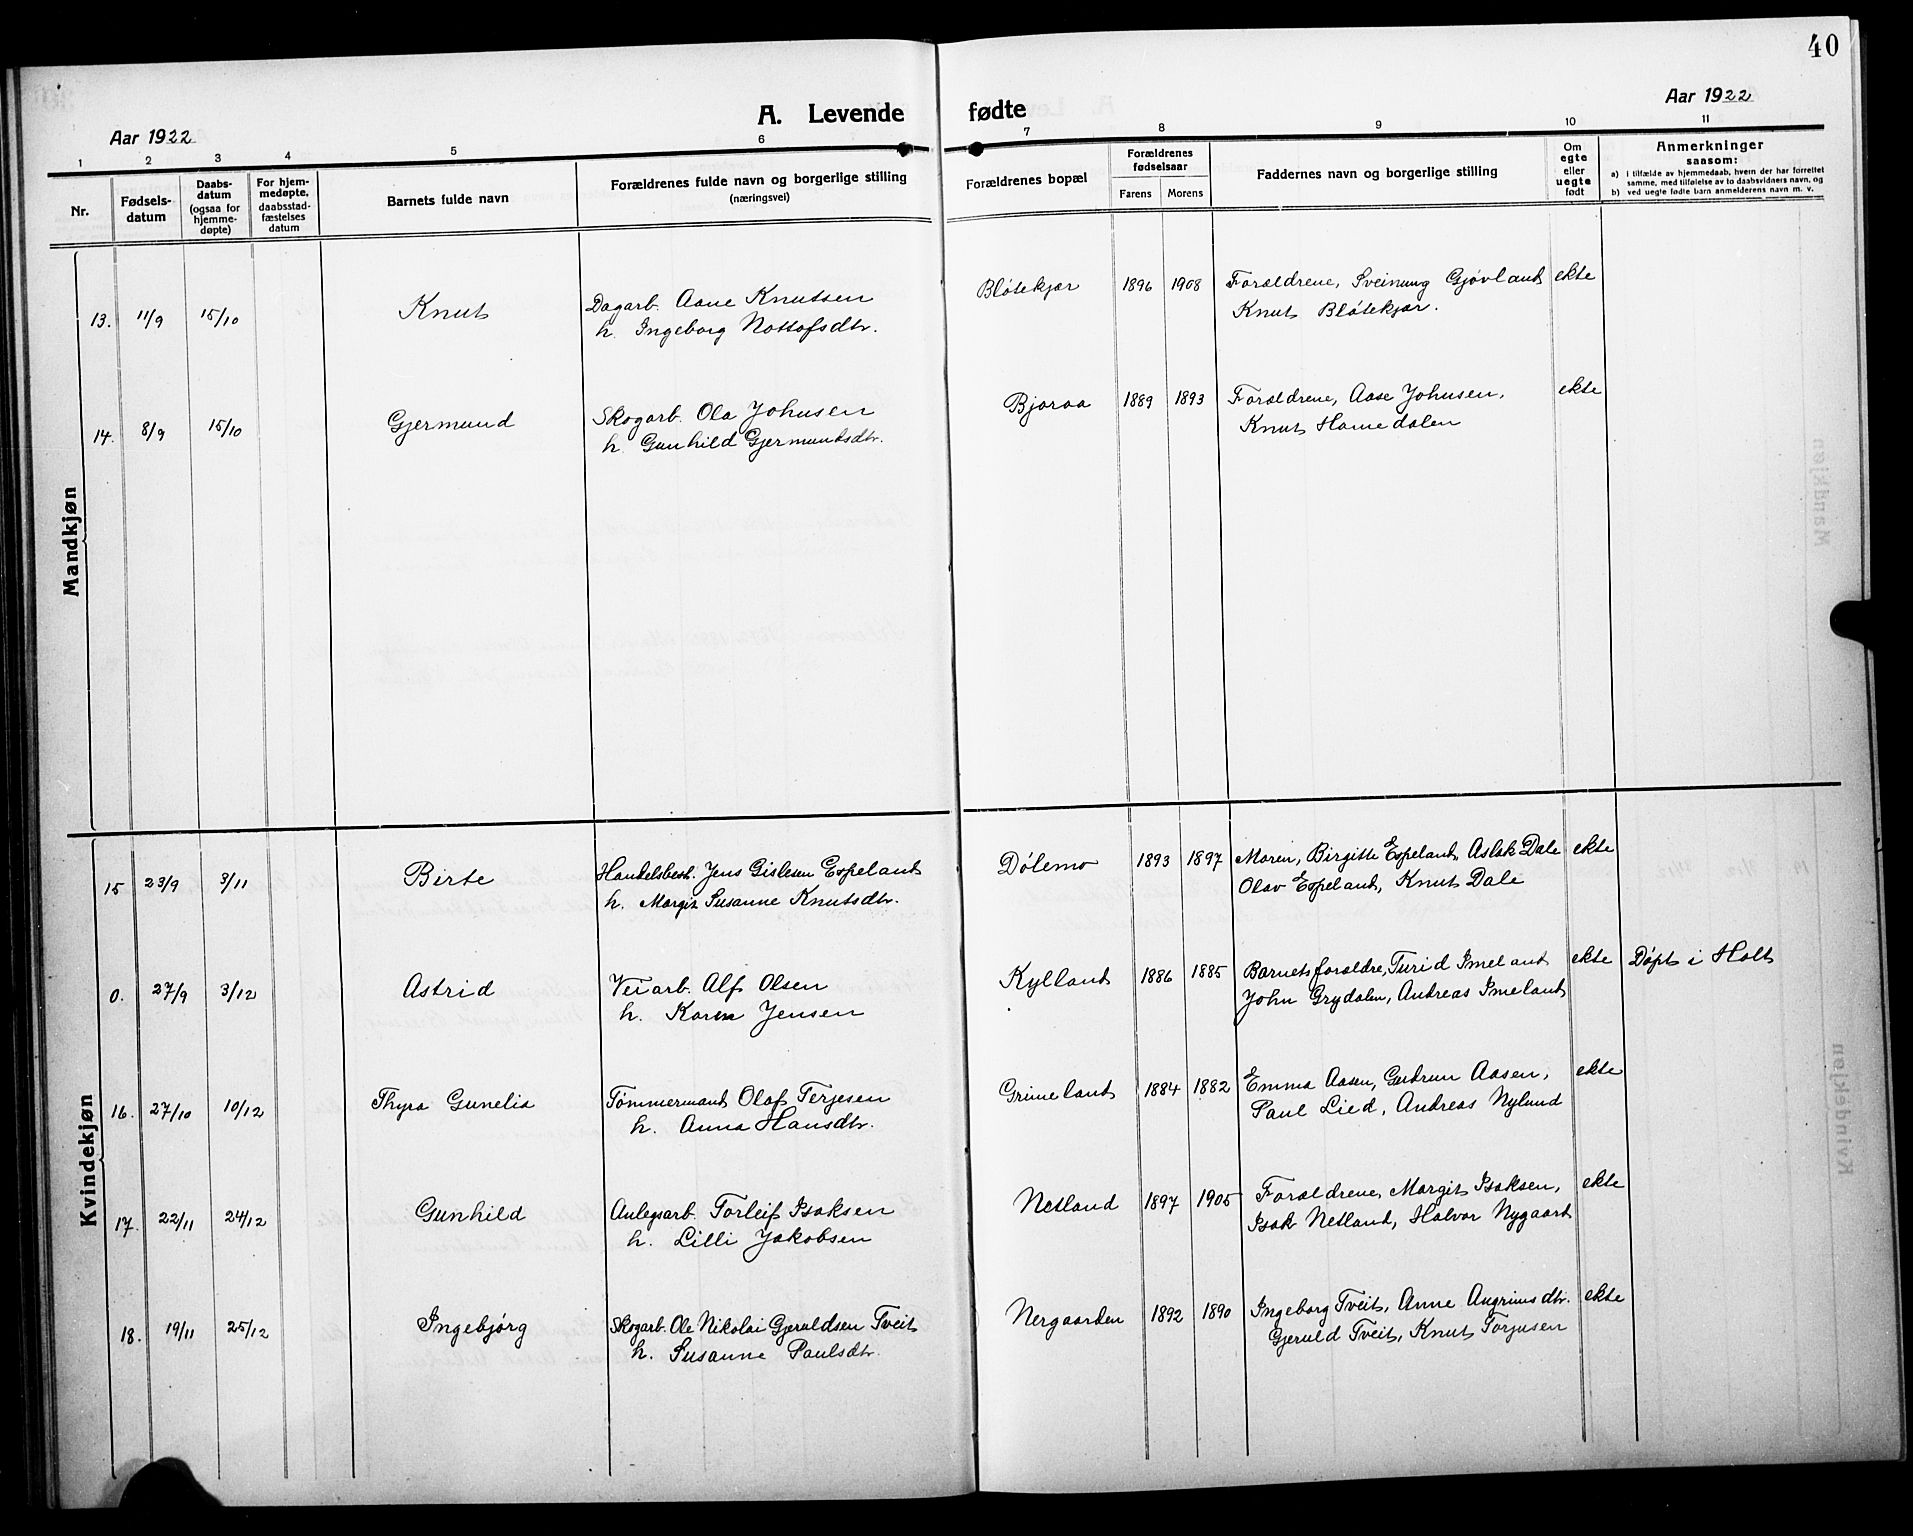 40
A. Levende fødte
Aar 1922
Aar 1922
1 2 3 4 5 6 7 8 9 10 11
Nr.
Fødsels-
datum
Daabs-
datum
(ogsaa for
hjemme-
døpte)
For hjem-
medøpte,
daabsstad-
fæstelses
datum
Barnets fulde navn
Forældrenes fulde navn og borgerlige stilling
(næringsvei)
Forældrenes bopæl
Forældrenes
fødselsaar
Farens Morens
Faddernes navn og borgerlige stilling
Om
egte
eller
uegte
født
Anmerkninger
saasom:
a) i tilfælde av hjemmedaab, hvem der har forrettet
samme, med tilføielse av to daabsvidners navn, og
b) ved uegte fødte barn anmelderens navn m. v.
Mandkjøn
13. 11/9 15/10 Knut Dagarb. Aane Knutsen Bløtekjær 1896 1908 Forældrene, Sveinung Gjøvland ekte
h. Ingeborg Nottofsdtr. Knut Bløtekjær.
14. 8/9 15/10 Gjermund Skogarb. Ola Johnsen Bjoraa 1889 1893 Forældrene, Aase Johnsen, ekte
h. Gunhild Gjermundsdtr. Knut Homedalen
Kvindekjøn
15 23/9 3/11 Birte Handelsbest. Jens Gislesen Espeland Dølemo 1893 1897 Moren, Birgitte Espeland, Aslak Dale ekte
h. Margit Susanne Knutsdtr. Olav Espeland, Knut Dale
0. 27/9 3/12 Astrid Veiarb. Alf Olsen Kylland 1886 1885 Barnets forældre, Turid Imeland ekte Døpt i Holt
h. Karen Jensen John Grydalen, Andreas Imeland
16. 27/10 10/12 Thyra Gunelia Tømmermand Olaf Terjesen Grimeland 1884 1882 Emma Aasen, Gudrun Aasen, ekte
h. Anna Hansdtr. Paul Lied, Andreas Nylund
17. 22/11 24/12 Gunhild Anlegsarb. Torleif Isaksen Netland 1897 1905 Forældrene, Margit Isaksen, ekte
h. Lilli Jakobsen Isak Netland, Halvor Nygaard
18. 19/11 25/12 Ingebjørg Skogarb. Ole Nikolai Gjeruldsen Tveit Nergaarden 1892 1890 Ingeborg Tveit, Anne Angrimsdtr. ekte
h. Susanne Paulsdtr. Gjeruld Tveit, Knut Torjusen